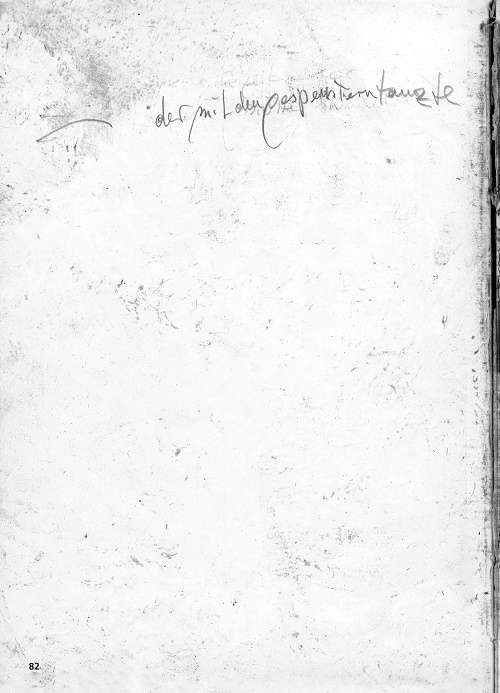 der mit den gespenstern tanzte
82